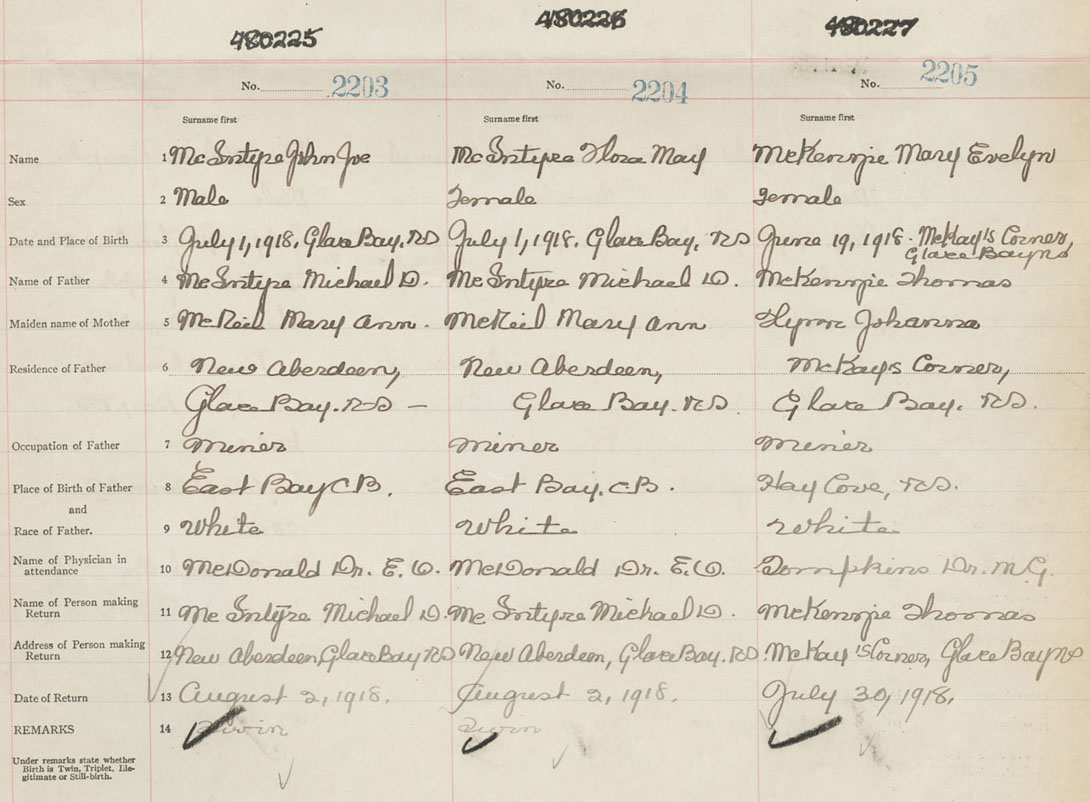 480225 480226 480227
No. 2203 No. 2204 No. 2205
Surname first Surname first Surname first
Name 1 McIntyre John Joe McIntyre Flora May McKenzie Mary Evelyn
Sex 2 Male Female Female
Date and Place of Birth 3 July 1, 1918. Glace Bay. NS July 1, 1918. Glace Bay, NS June 19, 1918. McKay's Corner,
Glace Bay NS
Name of Father 4 McIntyre Michael D. McIntyre Michael D. McKenzie Thomas
Maiden name of Mother 5 McNeil Mary Ann. McNeil Mary Ann Flynn Johanna
Residence of Father 6 New Aberdeen, New Aberdeen, McKay's Corner,
Glace Bay. NS — Glace Bay. NS. Glace Bay. NS.
Occupation of Father 7 Miner Miner Miner
Place of Birth of Father 8 East Bay CB. East Bay. CB. Hay Cove, NS.
and
Race of Father. 9 White White White
Name of Physician in
attendance 10 McDonald Dr. E. O. McDonald Dr. E. O. Tompkins Dr. M.G.
Name of Person making
Return 11 McIntyre Michael D. McIntyre Michael D. McKenzie Thomas
Address of Person making
Return 12 New Aberdeen, Glace Bay NS New Aberdeen, Glace Bay. NS. McKay's Corner, Glace Bay NS
Date of Return 13 August 2, 1918. August 2, 1918. July 30, 1918.
REMARKS 14 Twin Twin
Under remarks state whether
Birth is Twin, Triplet, Ille-
gitimate or Still-birth.